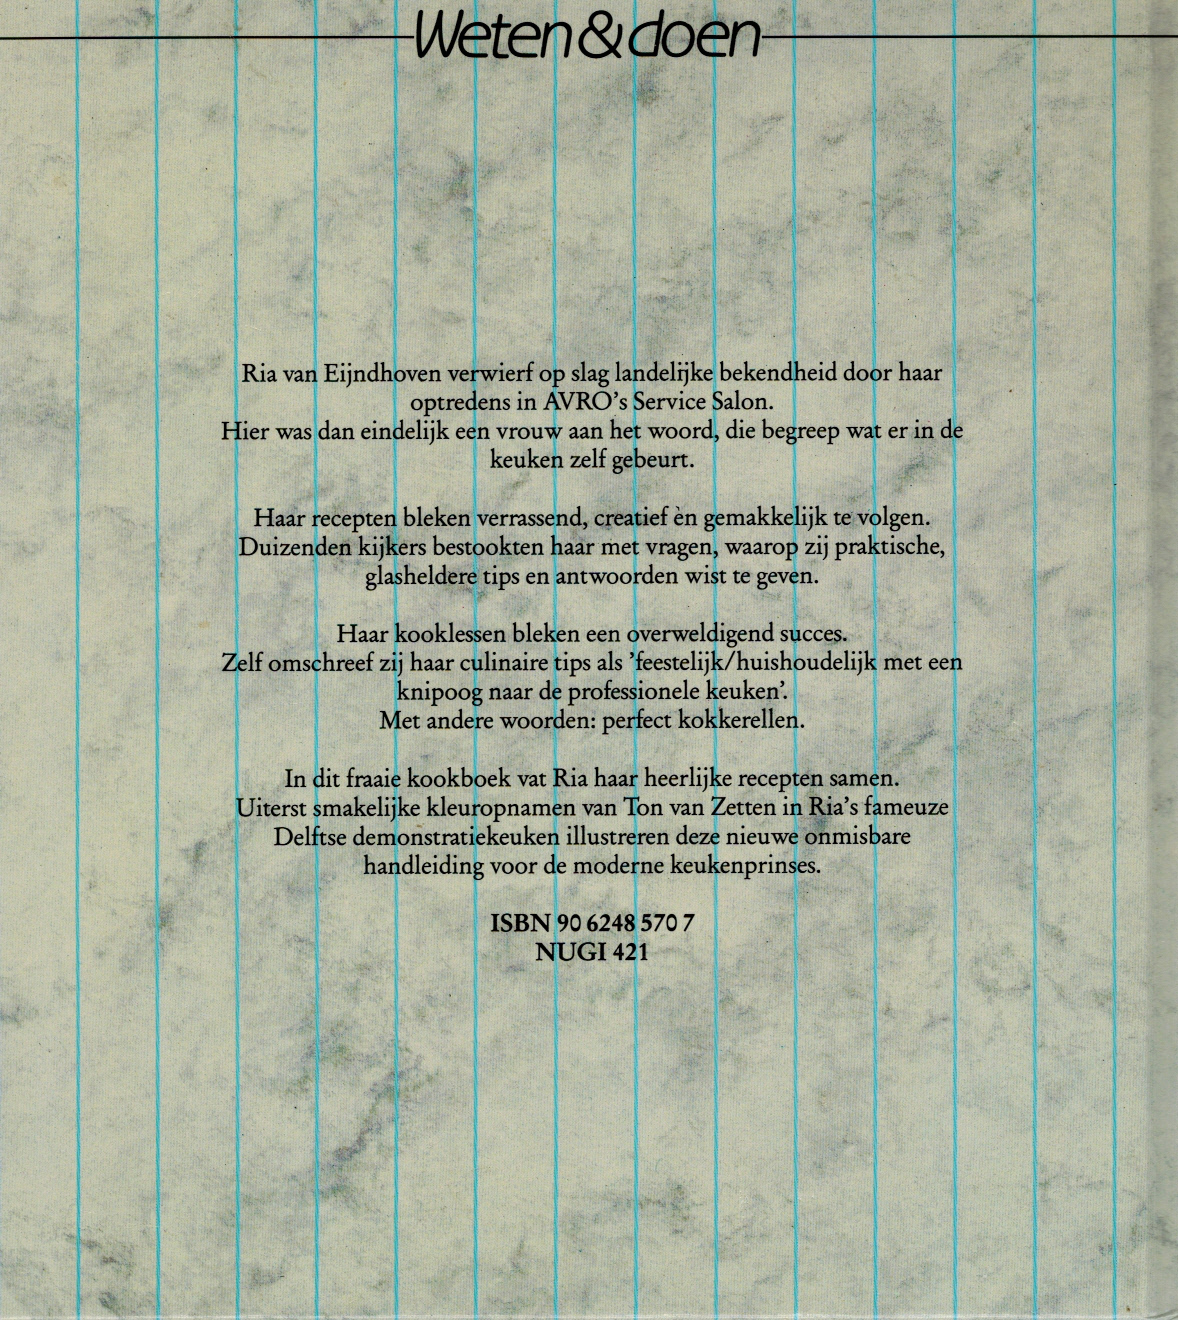 Weten&doen
Ria van Eijndhoven verwierf op slag landelijke bekendheid door haar
optredens in AVRO's Service Salon.
Hier was dan eindelijk een vrouw aan het woord, die begreep wat er in de
keuken zelf gebeurt.
Haar recepten bleken verrassend, creatief èn gemakkelijk te volgen.
Duizenden kijkers bestookten haar met vragen, waarop zij praktische,
glasheldere tips en antwoorden wist te geven.
Haar kooklessen bleken een overweldigend succes.
Zelf omschreef zij haar culinaire tips als 'feestelijk/huishoudelijk met een
knipoog naar de professionele keuken'.
Met andere woorden: perfect kokkerellen.
In dit fraaie kookboek vat Ria haar heerlijke recepten samen.
Uiterst smakelijke kleuropnamen van Ton van Zetten in Ria's fameuze
Delftse demonstratiekeuken illustreren deze nieuwe onmisbare
handleiding voor de moderne keukenprinses.
ISBN 90 6248 570 7
NUGI 421